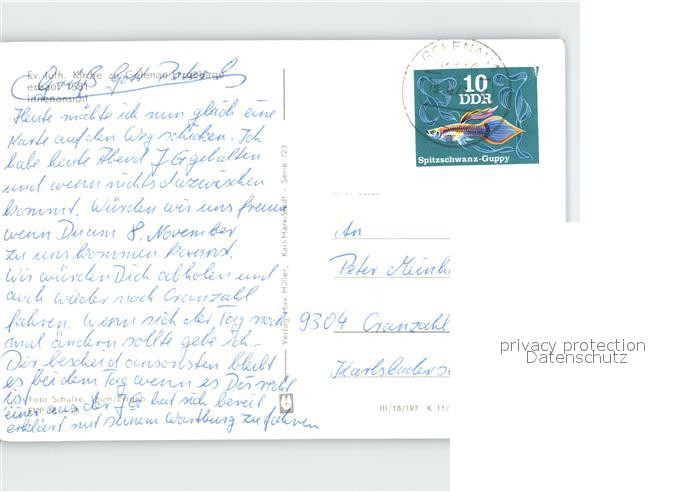 Ev. luth. Kirche zu Gelenau Erzgebirge
erbaut 1581
Innenansicht
Grüß Gott
Heute möchte ich nun gleich eine
Karte auf den Weg schicken. Ich
habe heute Abend JG gehalten
und wenn nichts dazwischen
kommt. Würden wir uns freuen
wenn Du am 8. November
zu uns kommen kannst.
Wir würden Dich abholen und
auch wieder nach Cranzahl
fahren. Wenn sich der Tag noch
mal ändern sollte gebe ich
Dir bescheid ansonsten bleibt
es bei dem Tag wenn es Dir recht
ist
Foto Schulze, Thum/Erzgeb.
einer aus der JG hat sich bereit
erklärt mit seinem Wartburg zu fahren
Verlag Max Müller, Karl-Marx-Stadt - Serie 723
GELENAU
10
DDR
Spitzschwanz-Guppy
An
Peter
9304 Cranzahl
Karlsbader
III/18/197 K 11/
privacy protection
Datenschutz